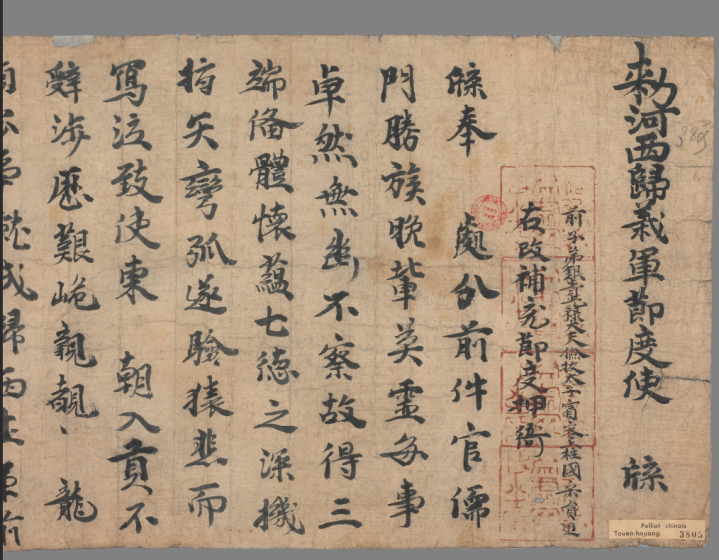 勑河西歸義軍節度使 牒
前子弟銀青光祿大夫檢校太子賓客上柱國宋員進
右改補充節度押衙
牒奉 處分前件官儒
門勝族晚輩英靈每事
卓然無幽不察故得三
端俻體懷蘊七德之深機
指矢彎弧遂驗猿悲而
寫泣致使東 朝入貢不
辭涉歷艱峗親覩 龍
3805
Pelliot chinois
Touen-houang 3805